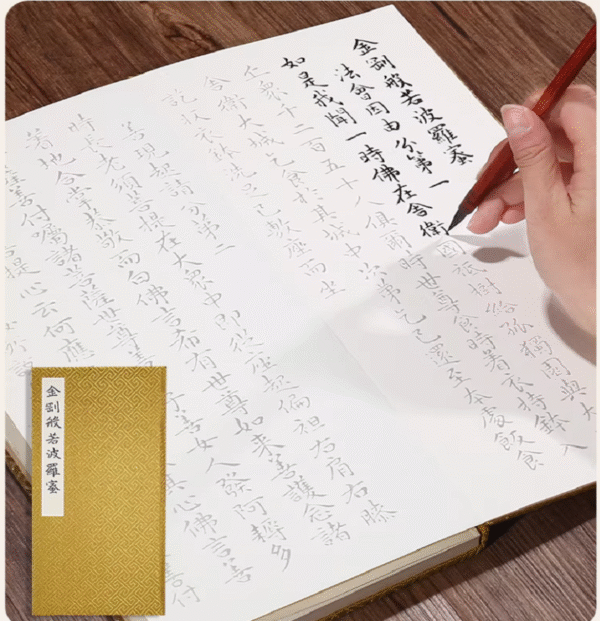 金剛般若波羅蜜
法會因由分第一
如是我聞一時佛在舍衛國祇樹給孤獨園與大
丘衆千二百五十人俱爾時世尊食時着衣持鉢入
舍衛大城乞食於其城中次第乞已還至本處飯食
訖收衣鉢洗足已敷座而坐
善現起請分第二
時長老須菩提在大衆中即從座起偏袒右肩右膝
着地合掌恭敬而白佛言希有世尊如来善護念諸
薩善付囑諸菩薩世尊善子善女人發阿耨多
菩提心云何應其心佛言善
善付
金剛般若波羅蜜